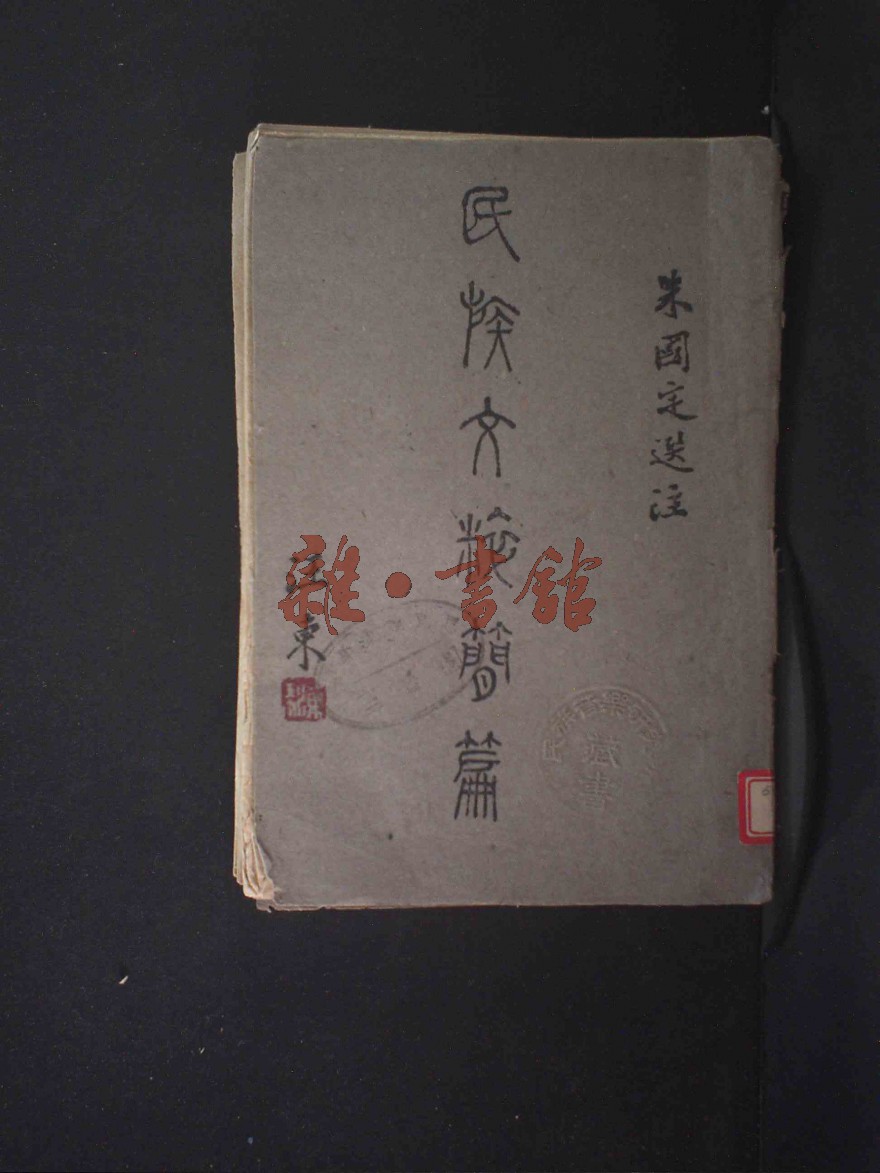 朱國定選注
民族文藝簡篇
汪東
雜·書館
藏書